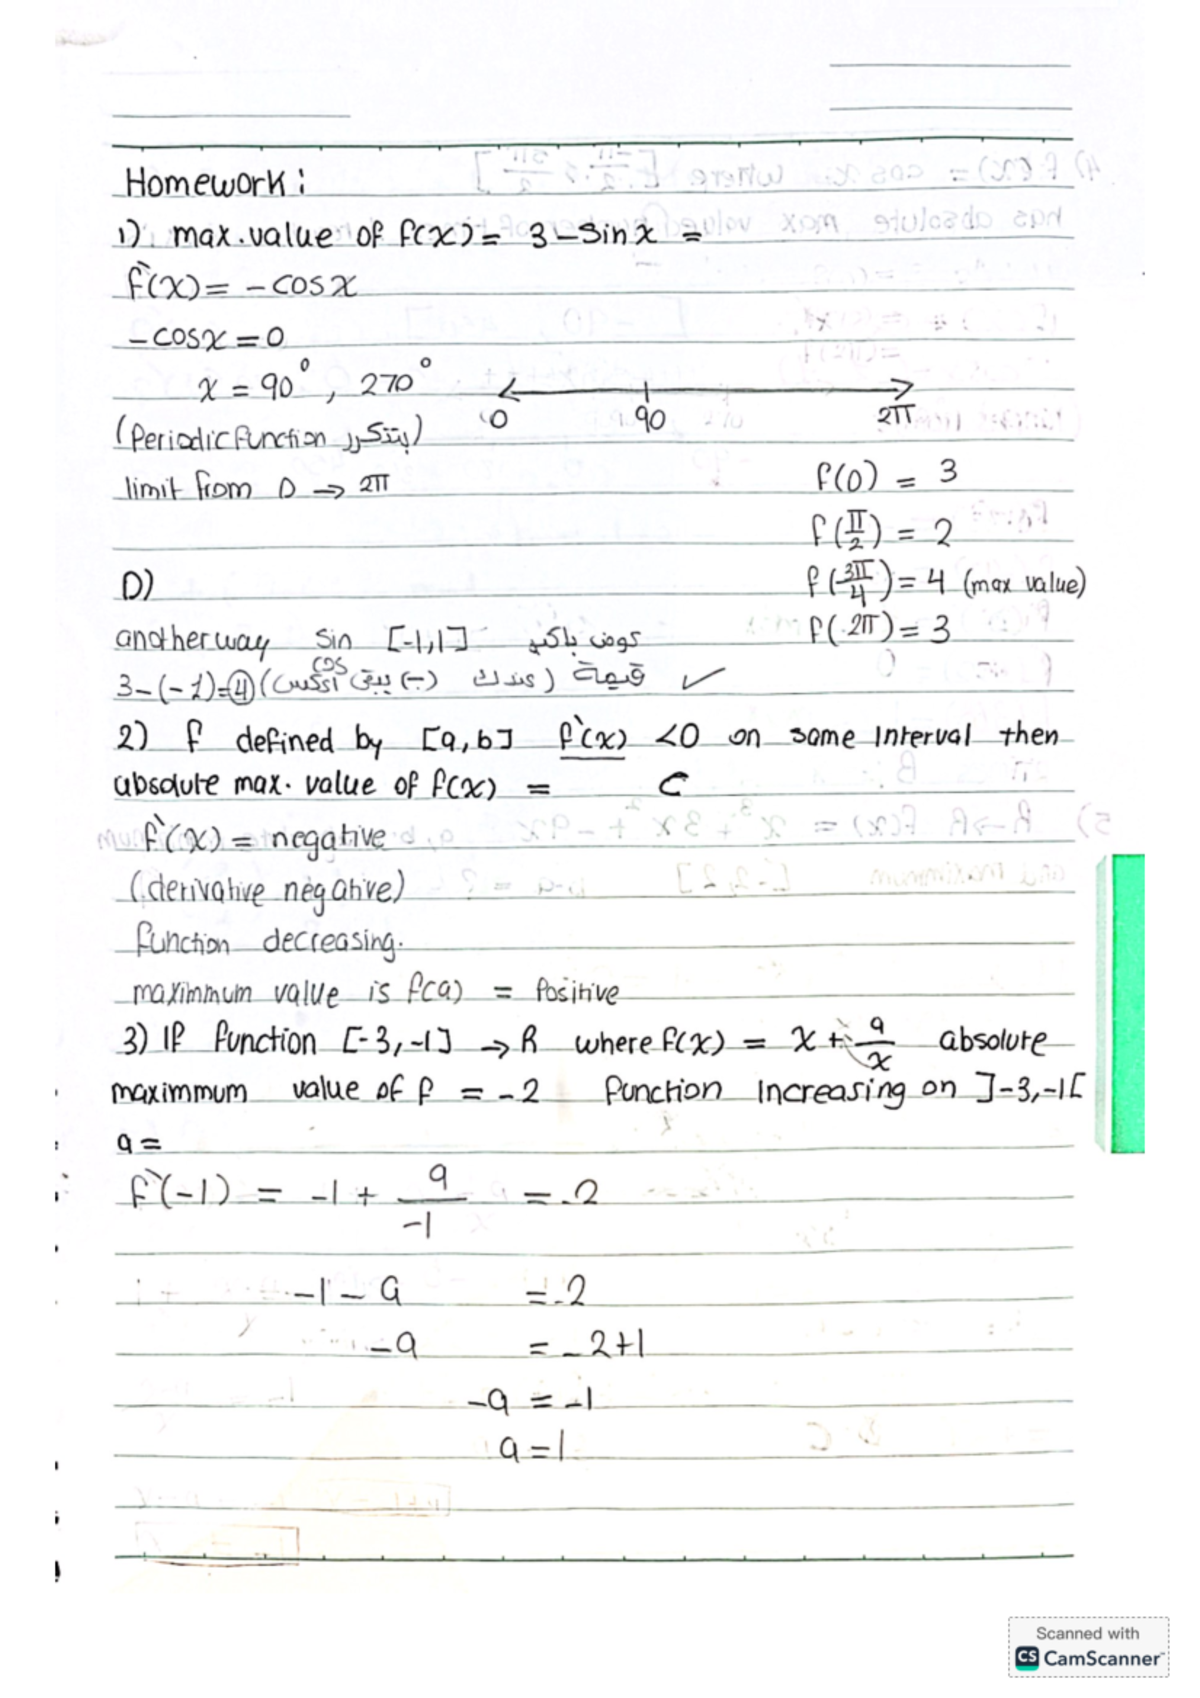 Homework:
1) max.value of f(x) = 3 – sin x =
f`(x) = – cos x
– cos x = 0
x = 90°, 270°
0 90 2π
(Periodic function بتتكرر)
limit from 0 → 2π
f(0) = 3
f(π/2) = 2
D)
f(3π/4) = 4 (max value)
another way sin [-1,1]
f(2π) = 3
cos
3-(-1)=4 (عندك (-) يبقى) قيمة ✓
2) f defined by [a,b] f`(x) <0 on same Interval then
absolute max. value of f(x) = C
f`(x) = negative
(derivative negative)
function decreasing.
maximmum value is f(a) = Positive
3) If function [-3,-1] → R where f(x) = x + a/x absolute
maximmum value of f = -2 function increasing on ]-3,-1[
a =
f`(-1) = -1 + a/-1 = -2
-1 - a = -2
-a = -2+1
-a = -1
a = 1
Scanned with
CS CamScanner